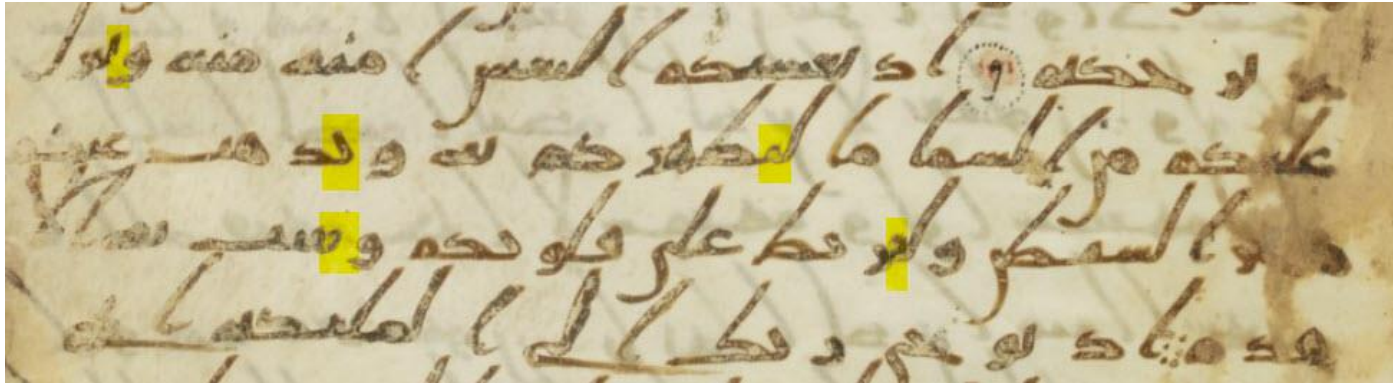 عزيز حكيم اذ يغشيكم النعس امنه منه وينزل
عليكم من السما ما ليطهركم به ويذهب عنكم
رجز الشيطن وليربط على قلوبكم ويثبت به الا
قدم اذ يوحي ربك الى الملئكه اني